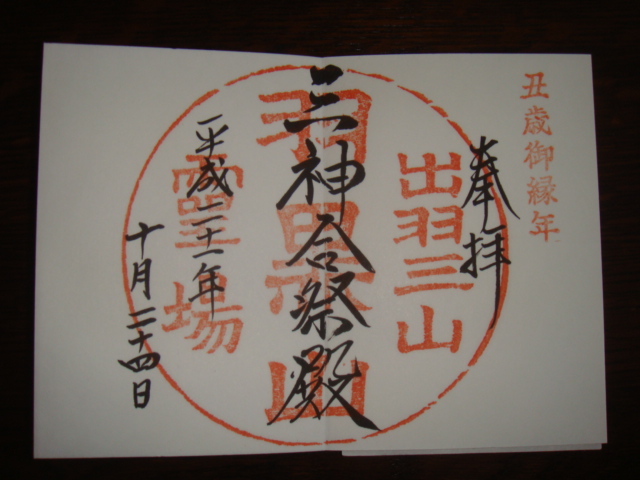 丑歳御縁年
奉拝
出羽三山
三神合祭殿
羽黒山
霊場
平成二十一年
十月二十四日